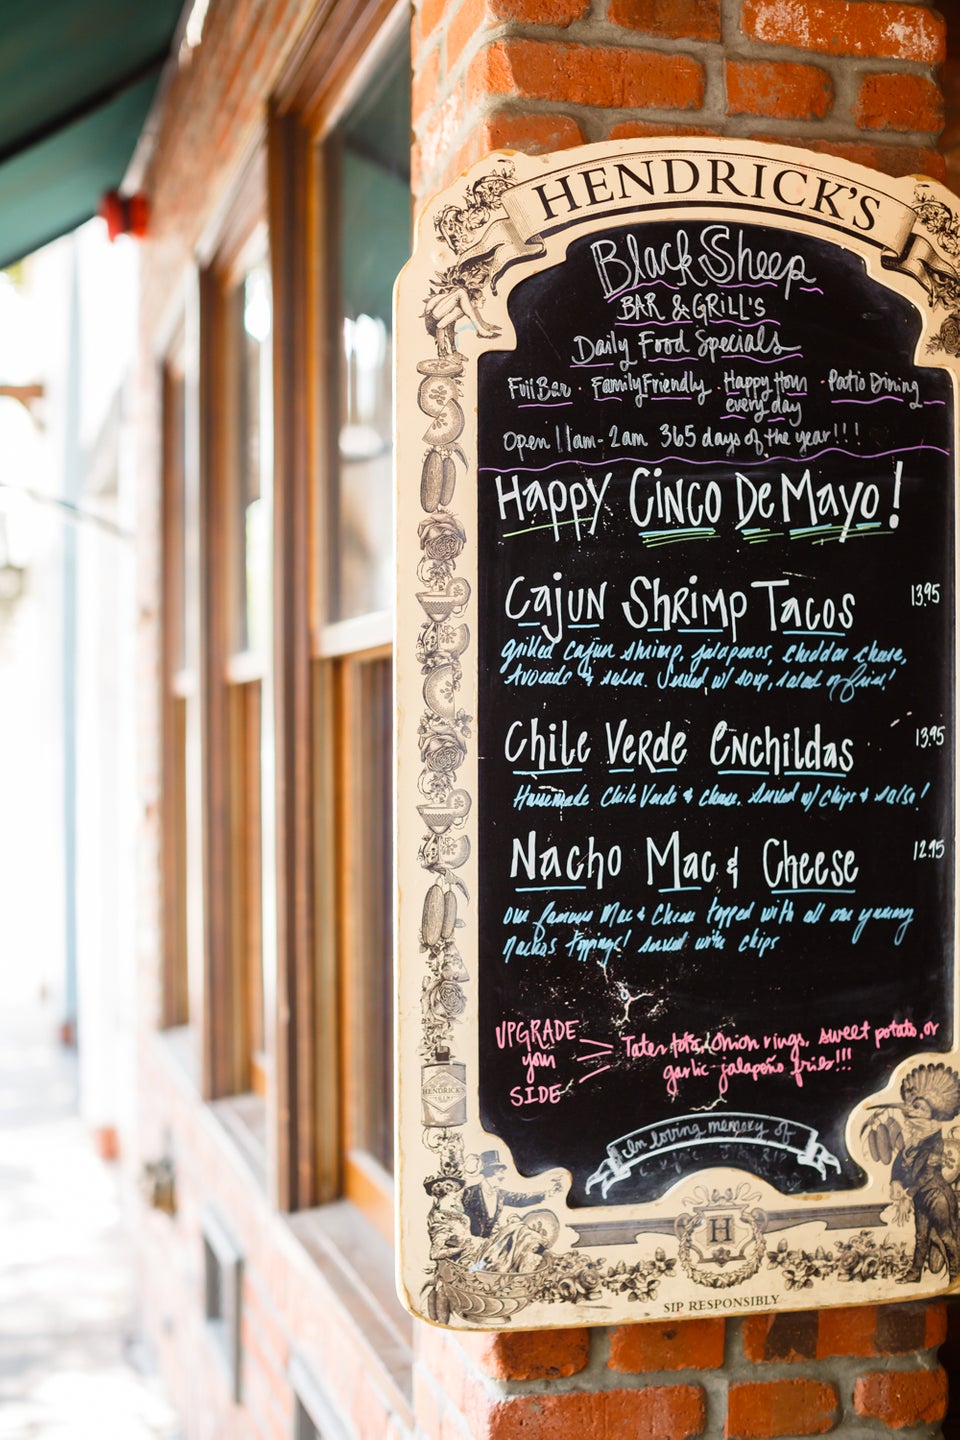 HENDRICK'S
Black Sheep
BAR & GRILL'S
Daily Food Specials
Full Bar · Family Friendly · Happy Hour · Patio Dining
every day
Open 11am-2am 365 days of the year!!!
Happy Cinco De Mayo!
Cajun Shrimp Tacos 13.95
grilled cajun shrimp, jalapenos, cheddar cheese,
Avocado & salsa. Served w/ soup, salad or fries!
Chile Verde Enchildas 13.95
Homemade Chile Verde & cheese. served w/ chips & salsa!
Nacho Mac & Cheese 12.95
our famous Mac & Cheese topped with all our yummy
Nachos toppings! served with chips
UPGRADE
your
SIDE
Tater tots, Onion rings, sweet potato, or
garlic-jalapeño fries!!!
In loving memory of
HENDRICK'S
GIN
H
SIP RESPONSIBLY